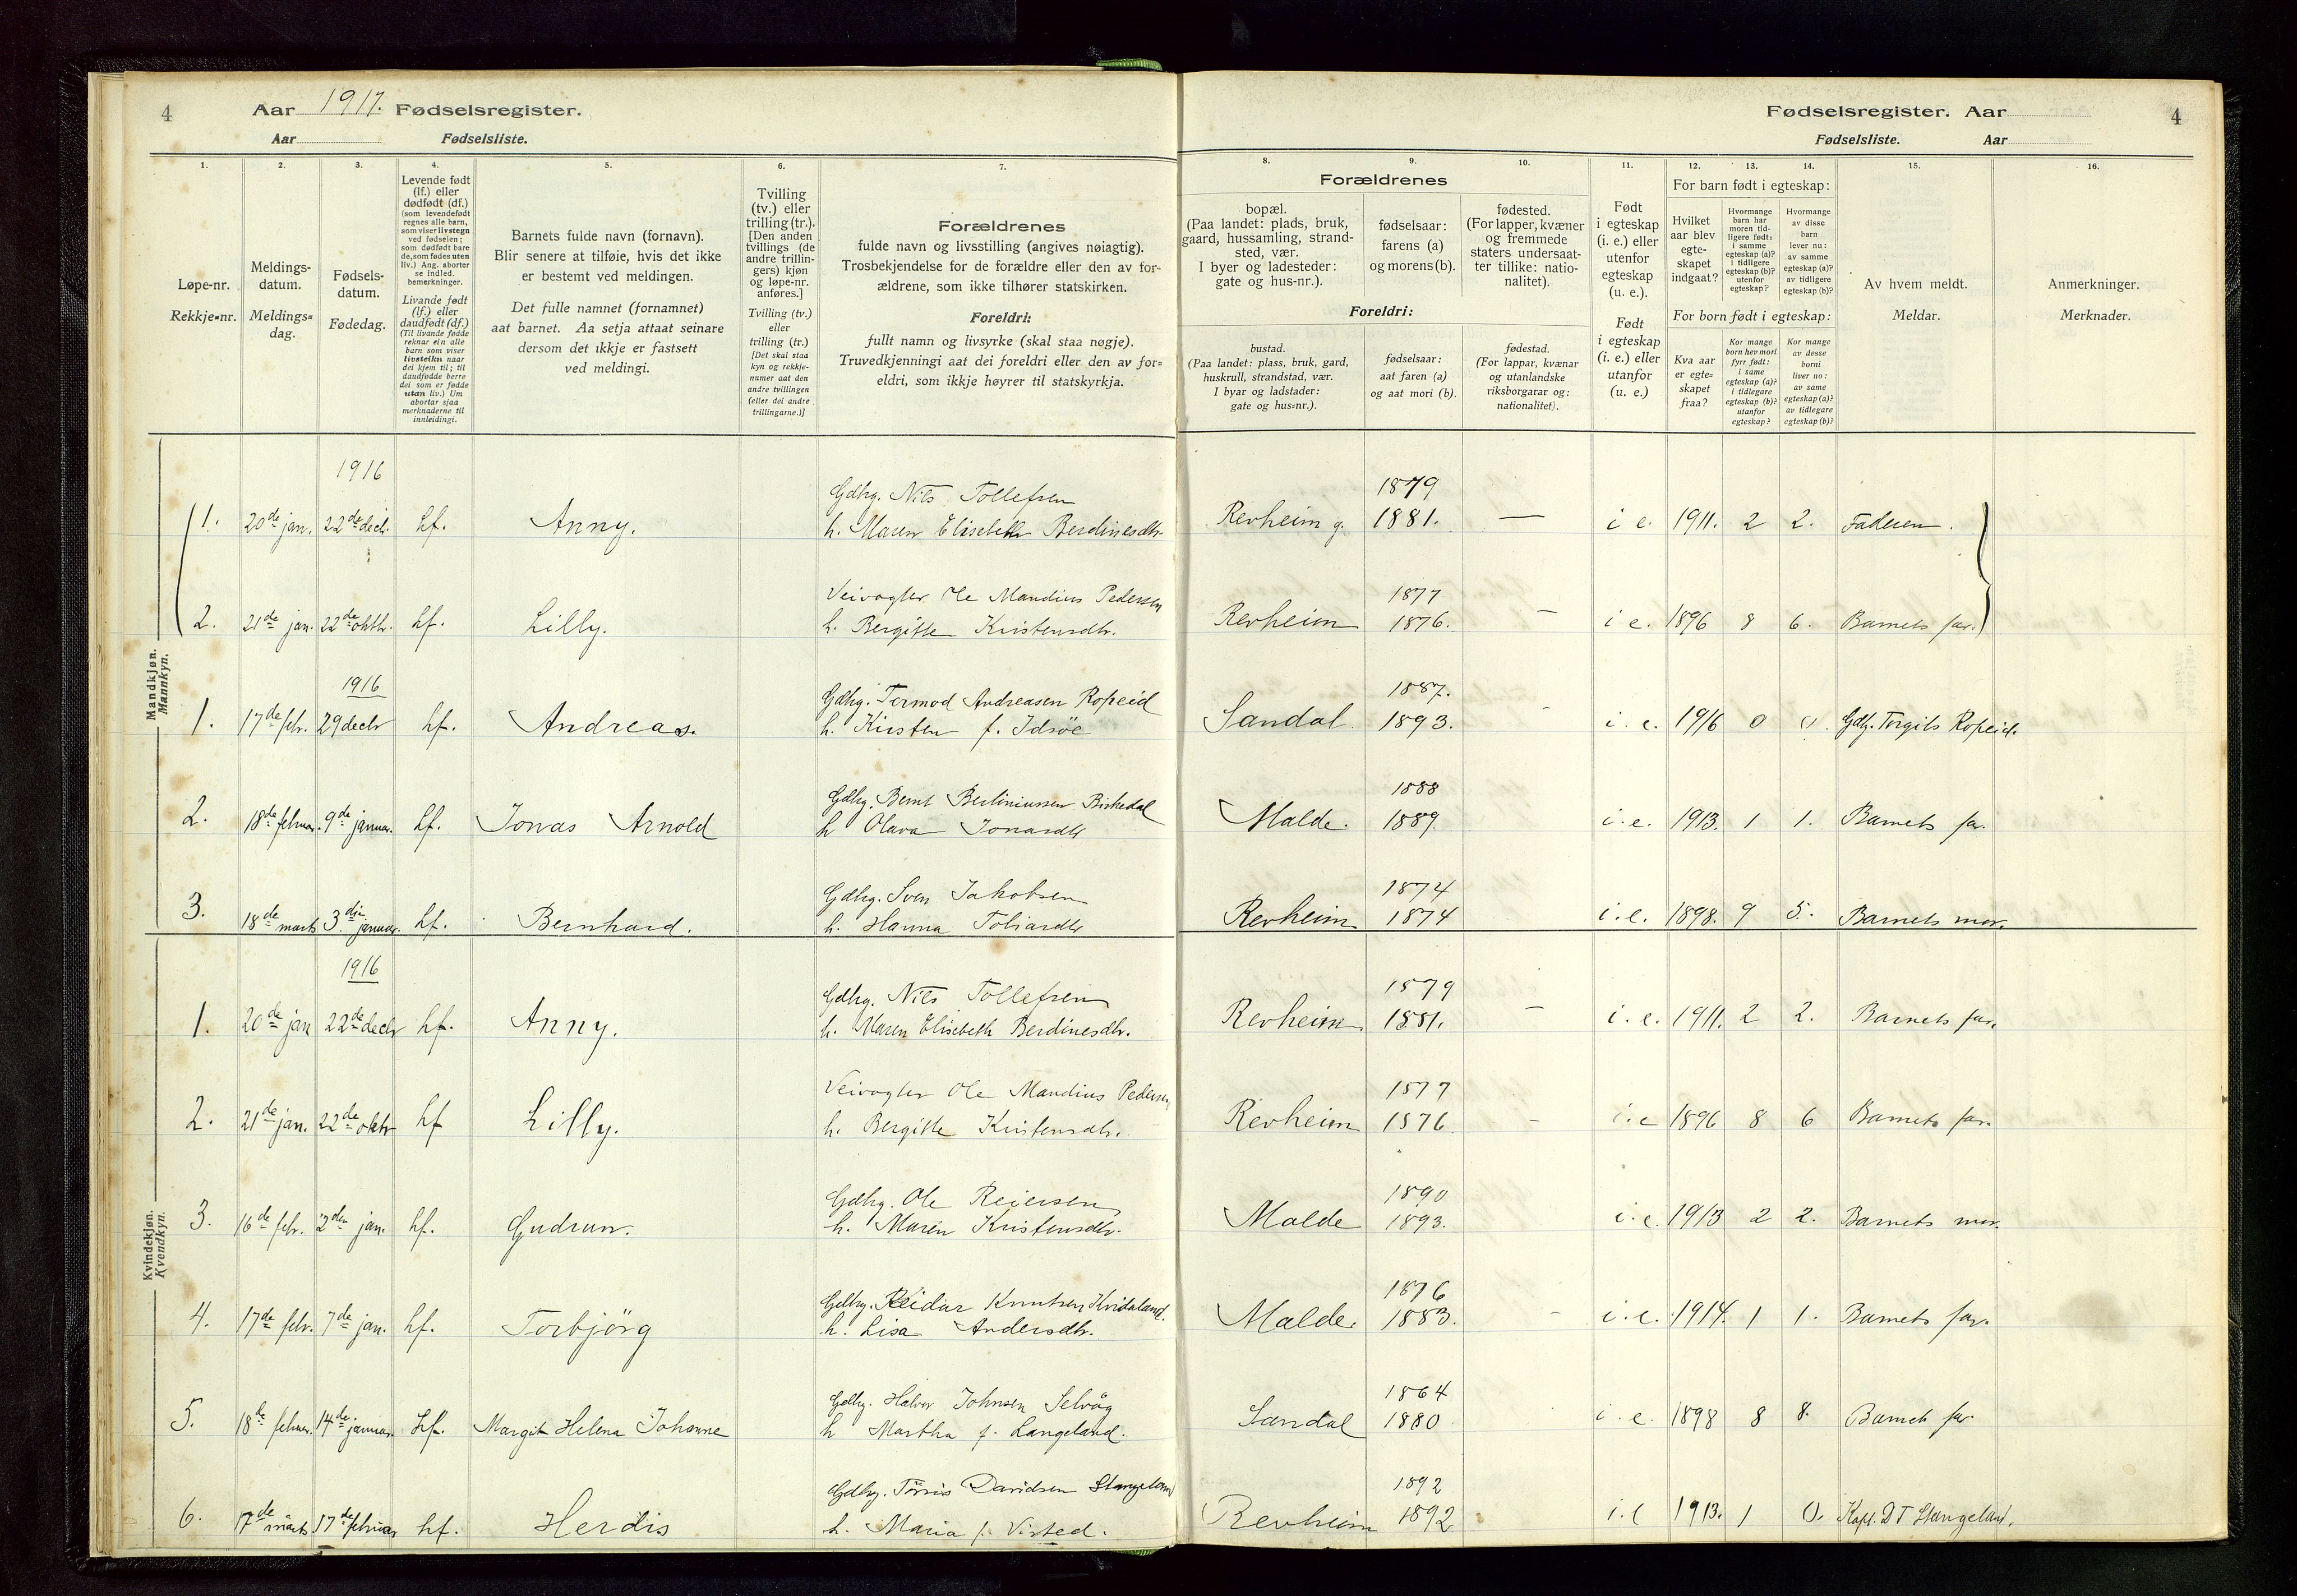 4 Aar 1917. Fødselsregister.
Aar Fødselsliste.
Fødselsregister. Aar 4
Fødselsliste. Aar
1. 2. 3. 4. 5. 6. 7. 8. 9. 10. 11. 12. 13. 14. 15. 16.
Løpe-nr.
Rekkje-nr.
Meldings-
datum.
Meldings-
dag.
Fødsels-
datum.
Fødedag.
Levende født
(lf.) eller
dødfødt (df.)
(som levendefødt
regnes alle barn,
som viser livstegn
ved fødselen;
som dødfødt bare
de, som fødes uten
liv.) Ang. aborter
se indled.
bemerkninger.
Livande født
(lf.) eller
daudfødt (df.)
(Til livande fødde
reknar ein alle
barn som viser
livsteikn naar
dei kjem til; til
daudfødde berre
dei som er fødde
utan liv.) Um
abortar sjaa
merknaderne til
innleidingi.
Barnets fulde navn (fornavn).
Blir senere at tilføie, hvis det ikke
er bestemt ved meldingen.
Det fulle namnet (fornamnet)
aat barnet. Aa setja attaat seinare
dersom det ikkje er fastsett
ved meldingi.
Tvilling
(tv.) eller
trilling (tr.).
[Den anden
tvillings (de
andre trillin-
gers) kjøn
og løpe-nr.
anføres.]
Tvilling (tv.)
eller
trilling (tr.)
[Det skal staa
kyn og rekkje-
numer aat den
andre tvillingen
(eller dei andre
trillingarne.)]
Forældrenes
fulde navn og livsstilling (angives nøiagtig).
Trosbekjendelse for de forældre eller den av for-
ældrene, som ikke tilhører statskirken.
Foreldri:
fullt namn og livsyrke (skal staa nøgje).
Truvedkjenningi aat dei foreldri eller den av for-
eldri, som ikkje høyrer til statskyrkja.
Forældrenes
bopæl.
(Paa landet: plads, bruk,
gaard, hussamling, strand-
sted, vær.
I byer og ladesteder:
gate og hus-nr.).
fødselsaar:
farens (a)
og morens (b).
fødested.
(For lapper, kvæner
og fremmede
staters undersaat-
ter tillike: natio-
nalitet).
Foreldri:
bustad.
(Paa landet: plass, bruk, gard,
huskrull, strandstad, vær.
I byar og ladstader:
gate og hus-nr.).
fødselsaar:
aat faren (a)
og aat mori (b).
fødestad.
(For lappar, kvænar
og utanlandske
riksborgarar og:
nationalitet).
Født
i egteskap
(i. e.) eller
utenfor
egteskap
(u. e.).
Født
i egteskap
(i. e.) eller
utanfor
(u. e.)
For barn født i egteskap:
Hvilket
aar blev
egte-
skapet
indgaat?
Hvormange
barn har
moren tid-
ligere født:
i samme
egteskap (a)?
i tidligere
egteskap (b)?
utenfor
egteskap?
Hvormange
av disse
barn
lever nu:
av samme
egteskap (a)?
av tidligere
egteskap (b)?
For born født i egteskap:
Kva aar
er egte-
skapet
fraa?
Kor mange
born hev mori
fyrr født:
i same
egteskap (a)?
i tidlegare
egteskap (b)?
utanfor
egteskap?
Kor mange
av desse
borni
liver no:
av same
egteskap (a)?
av tidlegare
egteskap (b)?
Av hvem meldt.
Meldar.
Anmerkninger.
Merknader.
Mandkjøn.
Mannkyn.
1916 Gdbrg. Nils Tollefsen 1879
1. 20de jan. 22de decbr. Lf. Anny. h. Maren Elisebeth Berdinesdtr. Revheim g. 1881. — i e. 1911. 2 2. Faderen.
Veivogter Ole Mandius Pedersen 1877
2. 21de jan. 22de oktbr. Lf. Lilly. h. Bergitte Kristensdtr. Revheim 1876. – i e. 1896 8 6. Barnets far.
1916 Gdbrg. Tormod Andreasen Ropeid 1887.
1. 17de febr. 29 decbr Lf. Andreas. h. Kirsten f. Idsöe Sandal 1893. i. e. 1916 0 0. Gdbr. Torgils Ropeid.
Gdbrg. Bernt Bertiniussen Birkedal 1888
2. 18de februar. 9de januar. Lf. Jonas Arnold h Olava Jonasdtr Malde. 1889. i. e. 1913. 1 1. Barnets far.
Gdbrg. Sven Jakobsen 1874
3. 18de marts 3die januar. Lf. Bernhard. h. Hanna Tobiasdtr Revheim 1874 i. e. 1898. 9 5. Barnets mor.
Kvindekjøn.
Kvendkyn.
1916 Gdbrg. Nils Tollefsen 1879
1. 20de jan 22de decbr Lf. Anny. h. Maren Elisebeth Berdinesdtr. Revheim 1881. – i. e. 1911. 2 2. Barnets far.
Veivogter Ole Mandius Pedersen 1877
2. 21de jan. 22de oktbr Lf Lilly. h. Bergitte Kristensdtr. Revheim 1876 – i. e 1896 8 6 Barnets far.
Gdbrg. Ole Reiersen 1890
3. 16de febr. 2den jan. Lf. Gudrun. h. Maren Kristensdtr. Malde 1893. i. e. 1913 2 2. Barnets mor.
Gdbrg. Reidar Knutsen Kvitaland. 1876
4. 17de febr. 7de jan. Lf. Torbjörg h. Lisa Andersdtr. Malde. 1883. – i. e. 1914. 1 1. Barnets far.
Gdbrg. Halvor Johnsen Selvåg 1864
5. 18de februar. 14de januar. Lf. Margit Helena Johanne h Martha f. Langeland. Sandal 1880 i. e. 1898 8 8. Barnets far.
Gdbrg. Tørris Davidsen Stangeland 1892
6. 17de marts 17de februar Lf. Herdis h. Maria f. Visted. Revheim 1892 i. e 1913. 1 0. Kapt. D T Stangeland.